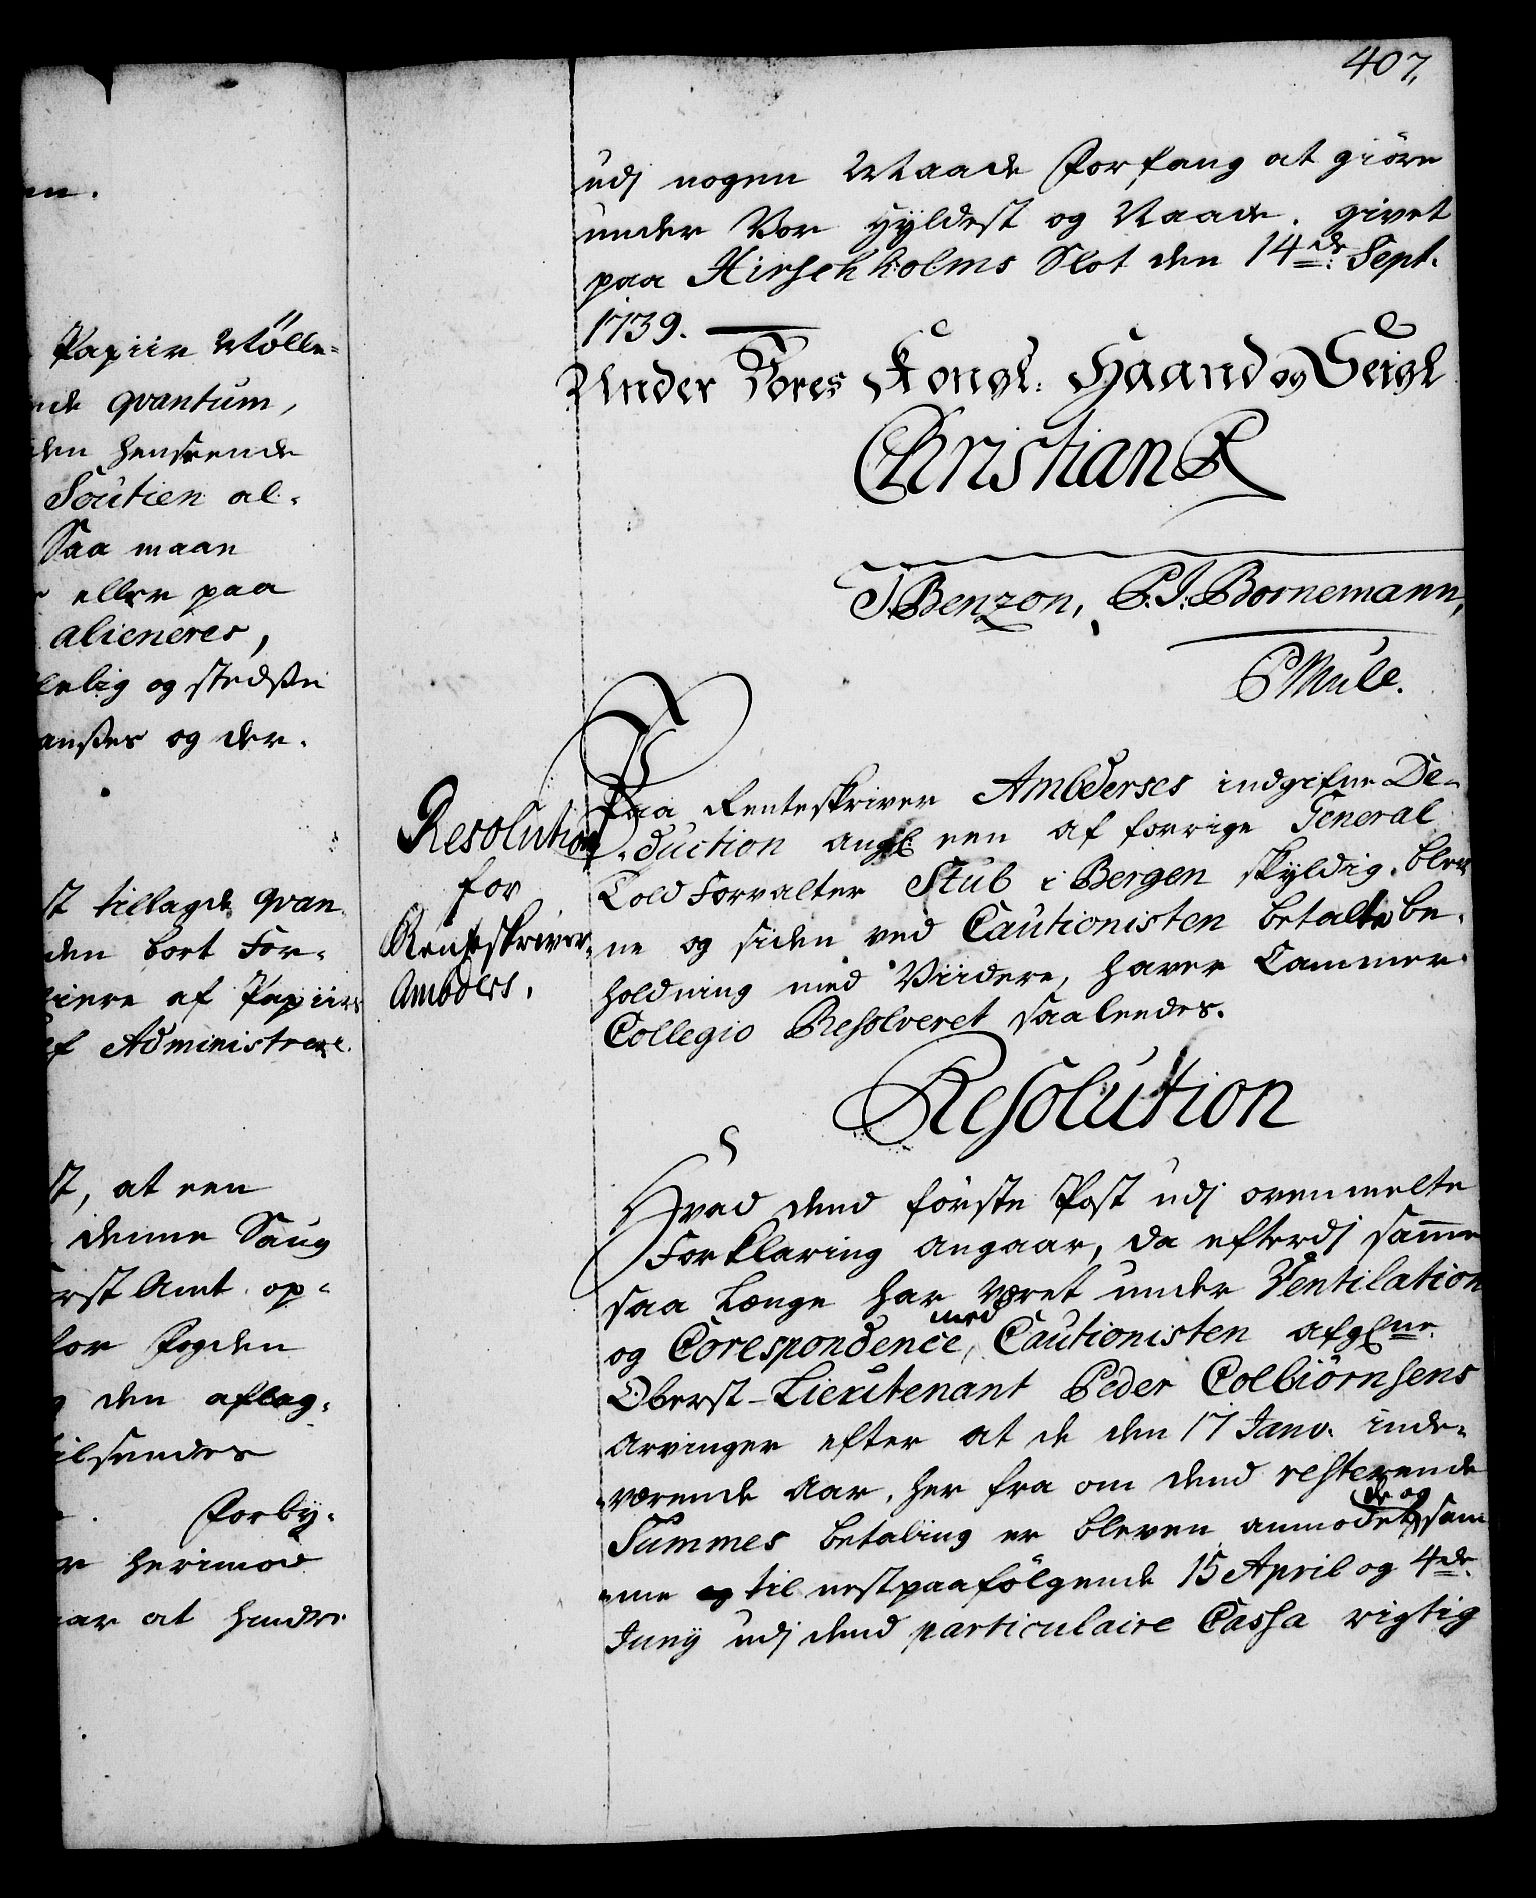 407.
udj nogen Maade Forfang at giöre
under Vor Hyldest og Naade. givet
paa Hirschholms Slot den 14de Sept.
1739.
Under Vores Kongl: Haand og Seigl
Christian R
J. Benzon, P. J. Bornemann,
P Mule.
Resolution
for
Renteskriver
Ambders.
Paa Renteskriver Ambderses indgifne De-
duction angl: een af forrige General
Told Forvalter Stub i Bergen skyldig blev
ne og siden ved Cautionisten betalte be-
holdning med Viidere, haver Cammer
Collegio Resolveret saaledes.
Resolution
Hvad dend förste Post udj ovenmelte
Forklaring angaar, da efterdj samme
saa Længe har været under Ventilation
og Corespondence med Cautionisten afgl: ne
Oberst-Lieutenant Peder Colbiörnsens
Arvinger efter at de den 17 Janv. inde-
værende Aar, her fra om dend resterende
Summes betaling er bleven anmodet, de og sam
me til nestpaafölgende 15 April og 4de
Juny udj dend particulaire Cassa rigtig
en.
Papiir Mölle-
nde qvantum,
den henseende
Soutien al-
Saa maan
eller paa
alieneres,
lelig og stedse
ansees og der-
st tillagde qvan
den bort For-
iere af Papiirs
af Administrere
st, at een
denne Saug
rst Amt op-
for Fogden
den aflag-
tilsendes
Forby-
herimod
ar at hindre